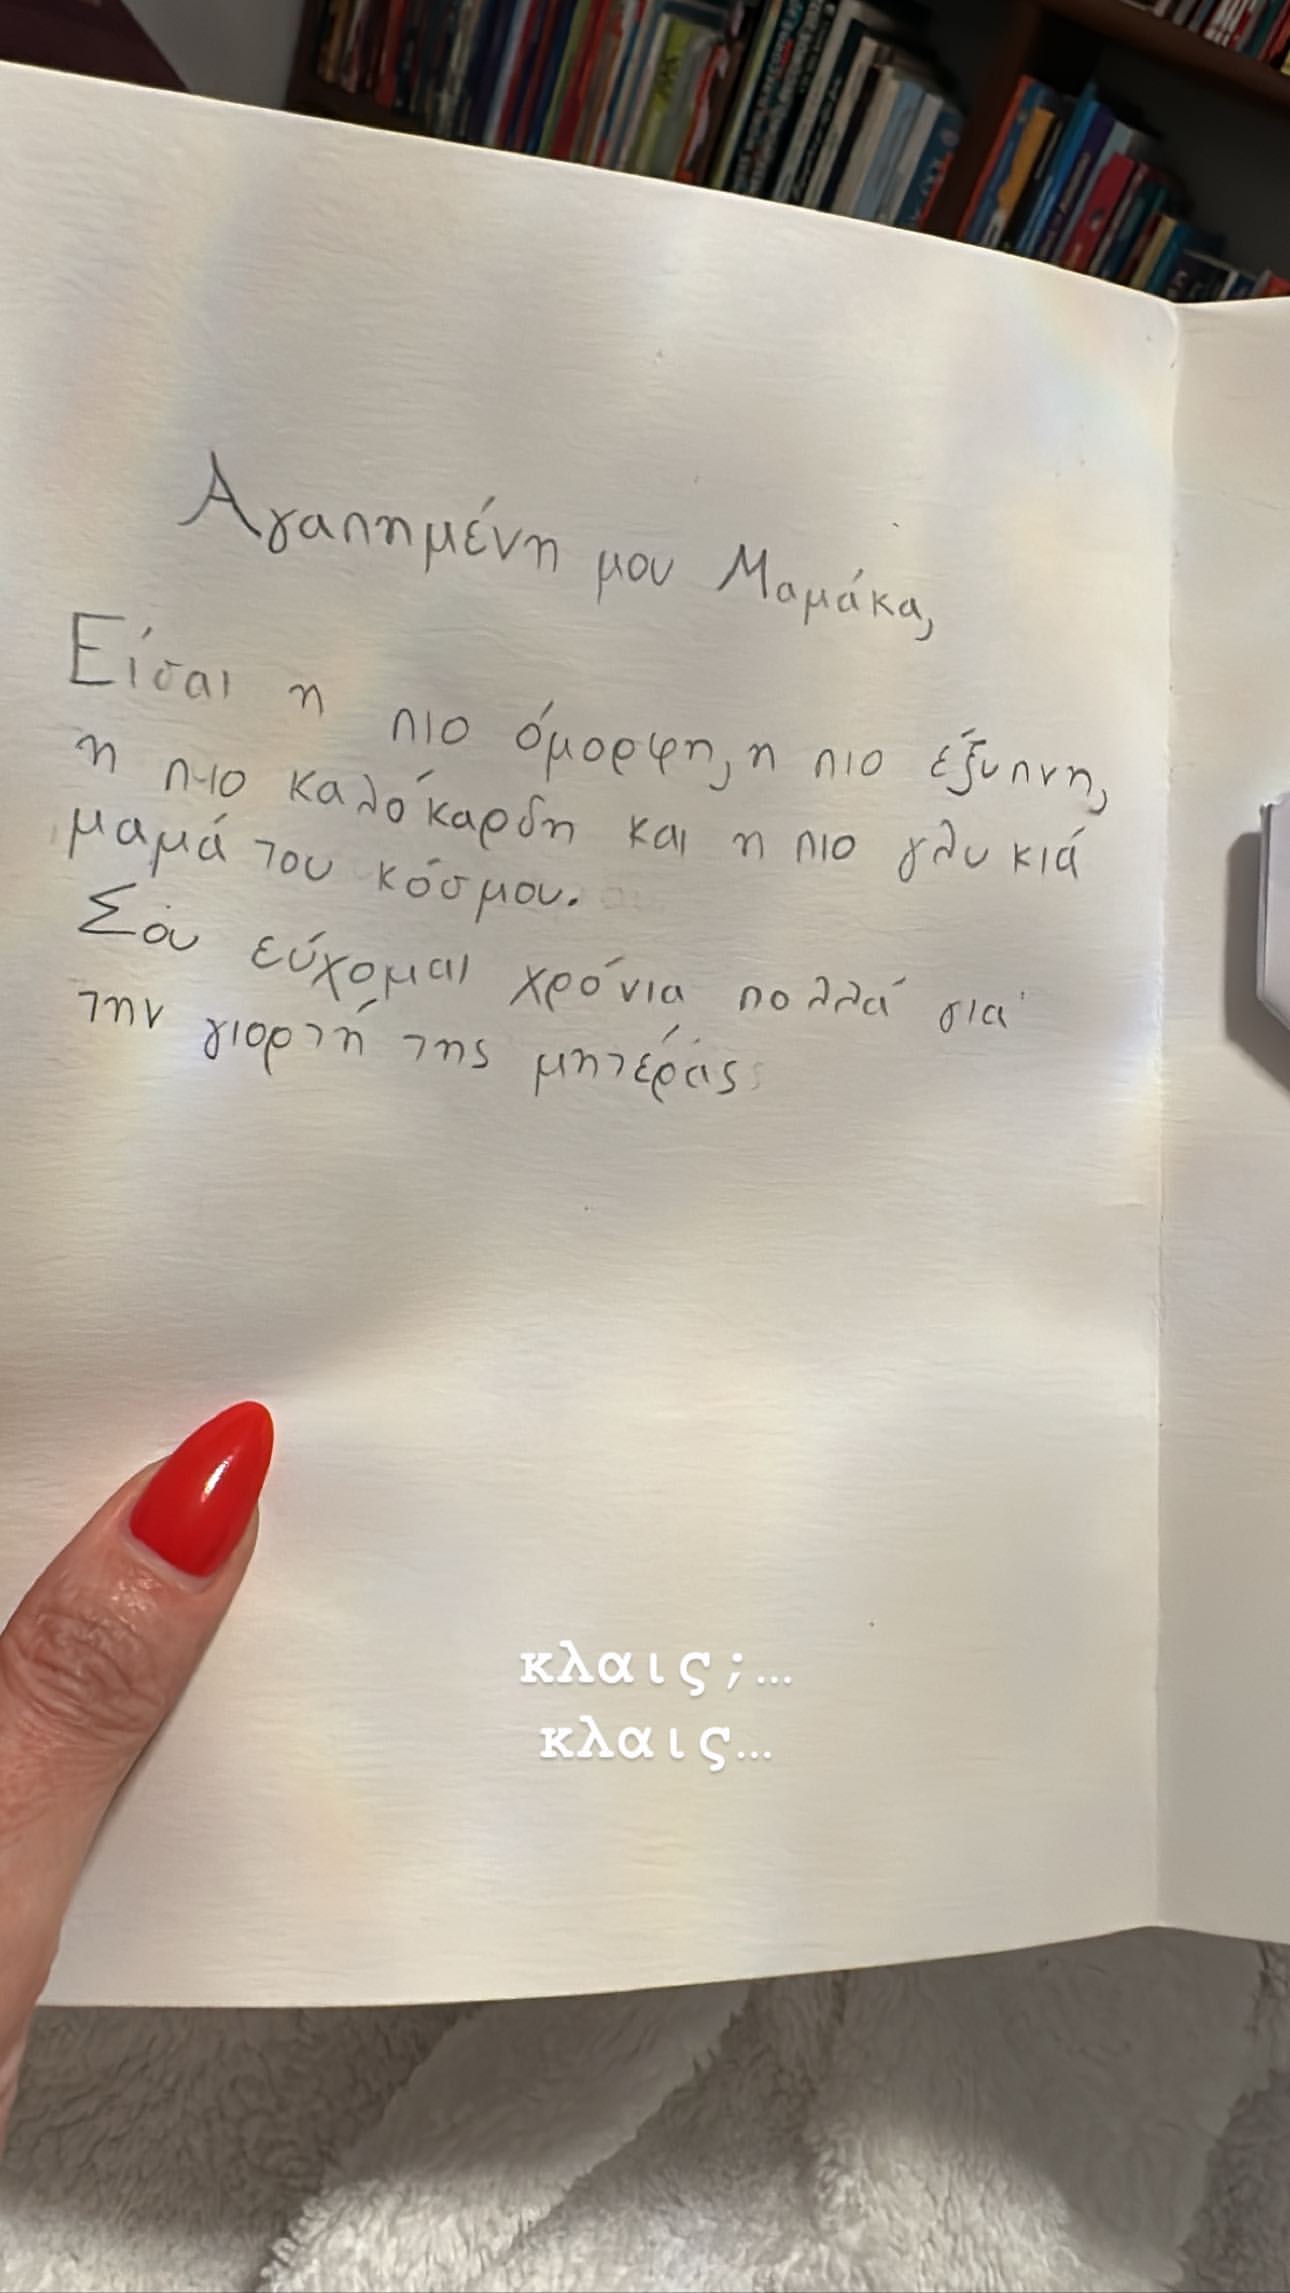 Αγαπημένη μου Μαμάκα,
Είσαι η πιο όμορφη, η πιο έξυπνη,
η πιο καλόκαρδη και η πιο γλυκιά
μαμά του κόσμου.
Σου εύχομαι χρόνια πολλά για
την γιορτή της μητέρας
κλαις;...
κλαις...